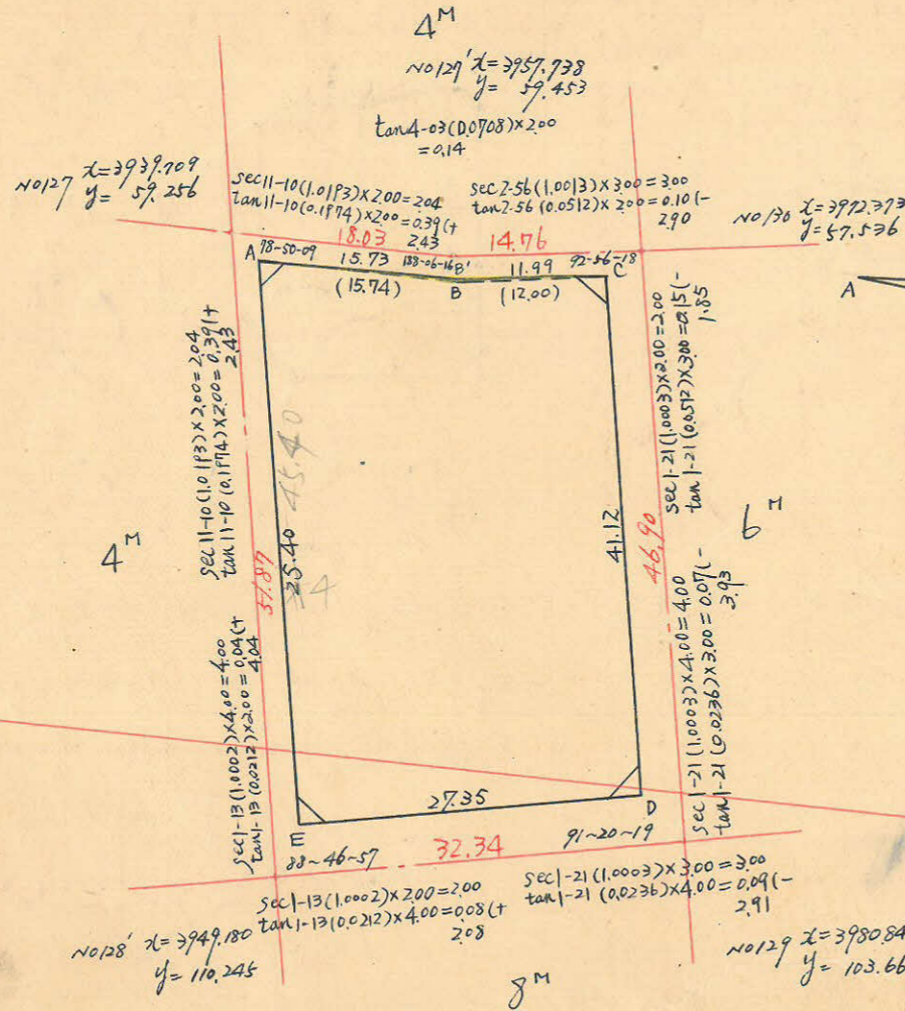 4M
No127' x=3957.738
y= 59.453
tan4-03(0.0708)×2.00
=0.14
No127 x=3939.709
y= 59.256
sec11-10(1.0193)×2.00=2.04
tan11-10(0.1974)×2.00=0.39(+
2.43
sec2-56(1.0013)×3.00=3.00
tan2-56(0.0512)×2.00=0.10(-
2.90
No130 x=3972.373
y=57.536
18.03
14.76
A
78-50-09
15.73
188-06-16
B'
11.99
92-56-18
C
(15.74)
B
(12.00)
A
sec11-10(1.0193)×2.00=2.04
tan11-10(0.1974)×2.00=0.39(+
2.43
sec1-21(1.0003)×2.00=2.00
tan1-21(0.0512)×3.00=0.15(-
1.85
45.40
25.40
41.12
46.90
6M
4M
51.87
sec1-13(1.0002)×4.00=4.00
tan1-13(0.0212)×2.00=0.04(+
4.04
sec1-21(1.0003)×4.00=4.00
tan1-21(0.0236)×3.00=0.07(-
3.93
27.35
E
D
88~46~57
32.34
91~20~19
sec1-13(1.0002)×2.00=2.00
tan1-13(0.0212)×4.00=0.08(+
2.08
sec1-21(1.0003)×3.00=3.00
tan1-21(0.0236)×4.00=0.09(-
2.91
No128' x=3949.180
y= 110.245
No129 x=3980.84
y= 103.66
8M